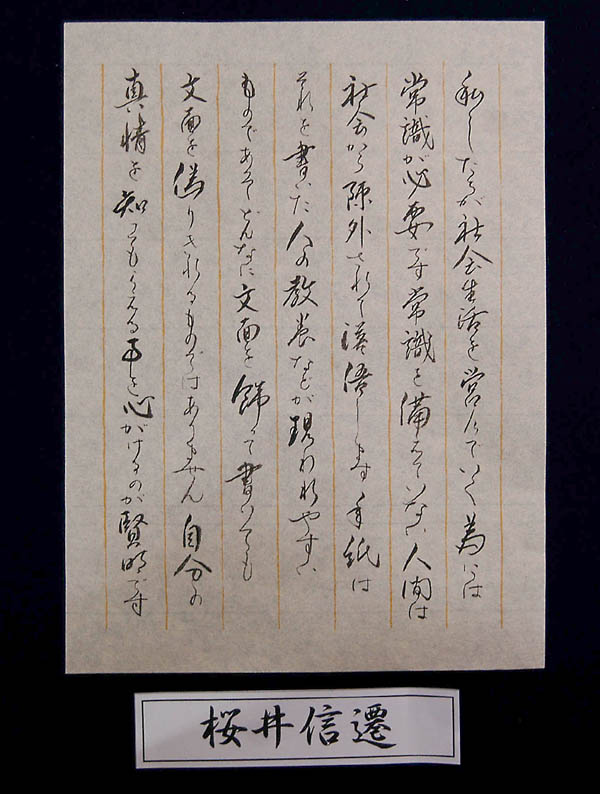 私したちが社会生活を営んでいく為には
常識が必要です常識を備えていない人間は
社会から除外されて落伍します手紙は
それを書いた人の教養などが現われやすい
ものであってどんなに文面を飾って書いても
文面を偽りきれるものではありません自分の
真情を知ってもらえる事を心がけるのが賢明です
桜井信遷